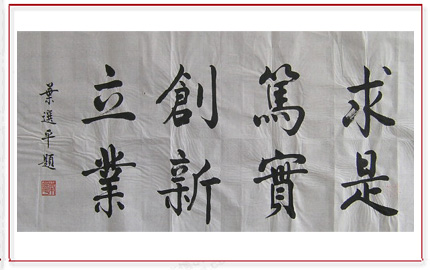 求是
篤實
創新
立業
葉選平題